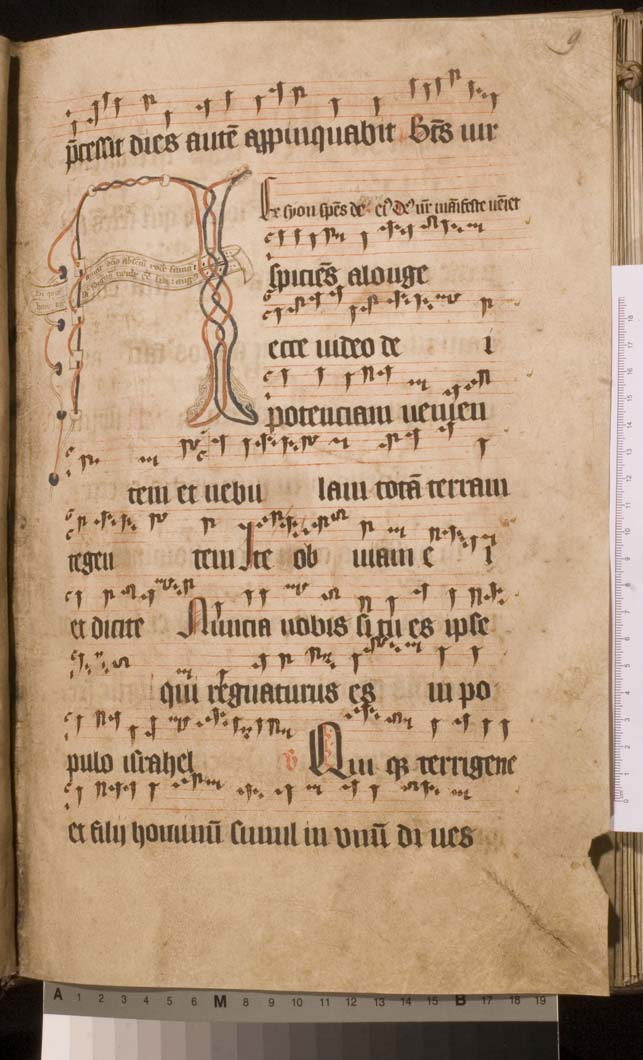 9
p̄cessit dies autē appinquabit Scēs iur
Ex syon spēs de eiꝰ deꝰ nr̄ manifeste ueniet
Aspiciēs alonge
ecce uideo de i
potenciam uenien
tem et nebu lam totā terram
tegen tem Ite ob uiam e i
et dicite Nuncia nobis si tu es ipse
qui regnaturus es in po
pulo israhel v Qui qꝫ terrigene
et filij hominū simul in vnū di ues
A 1 2 3 4 5 6 M 8 9 10 11 12 13 14 15 B 17 18 19